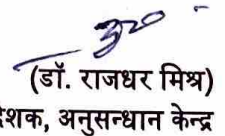 (डॉ. राजधर मिश्र)
देशक, अनुसन्धान केन्द्र